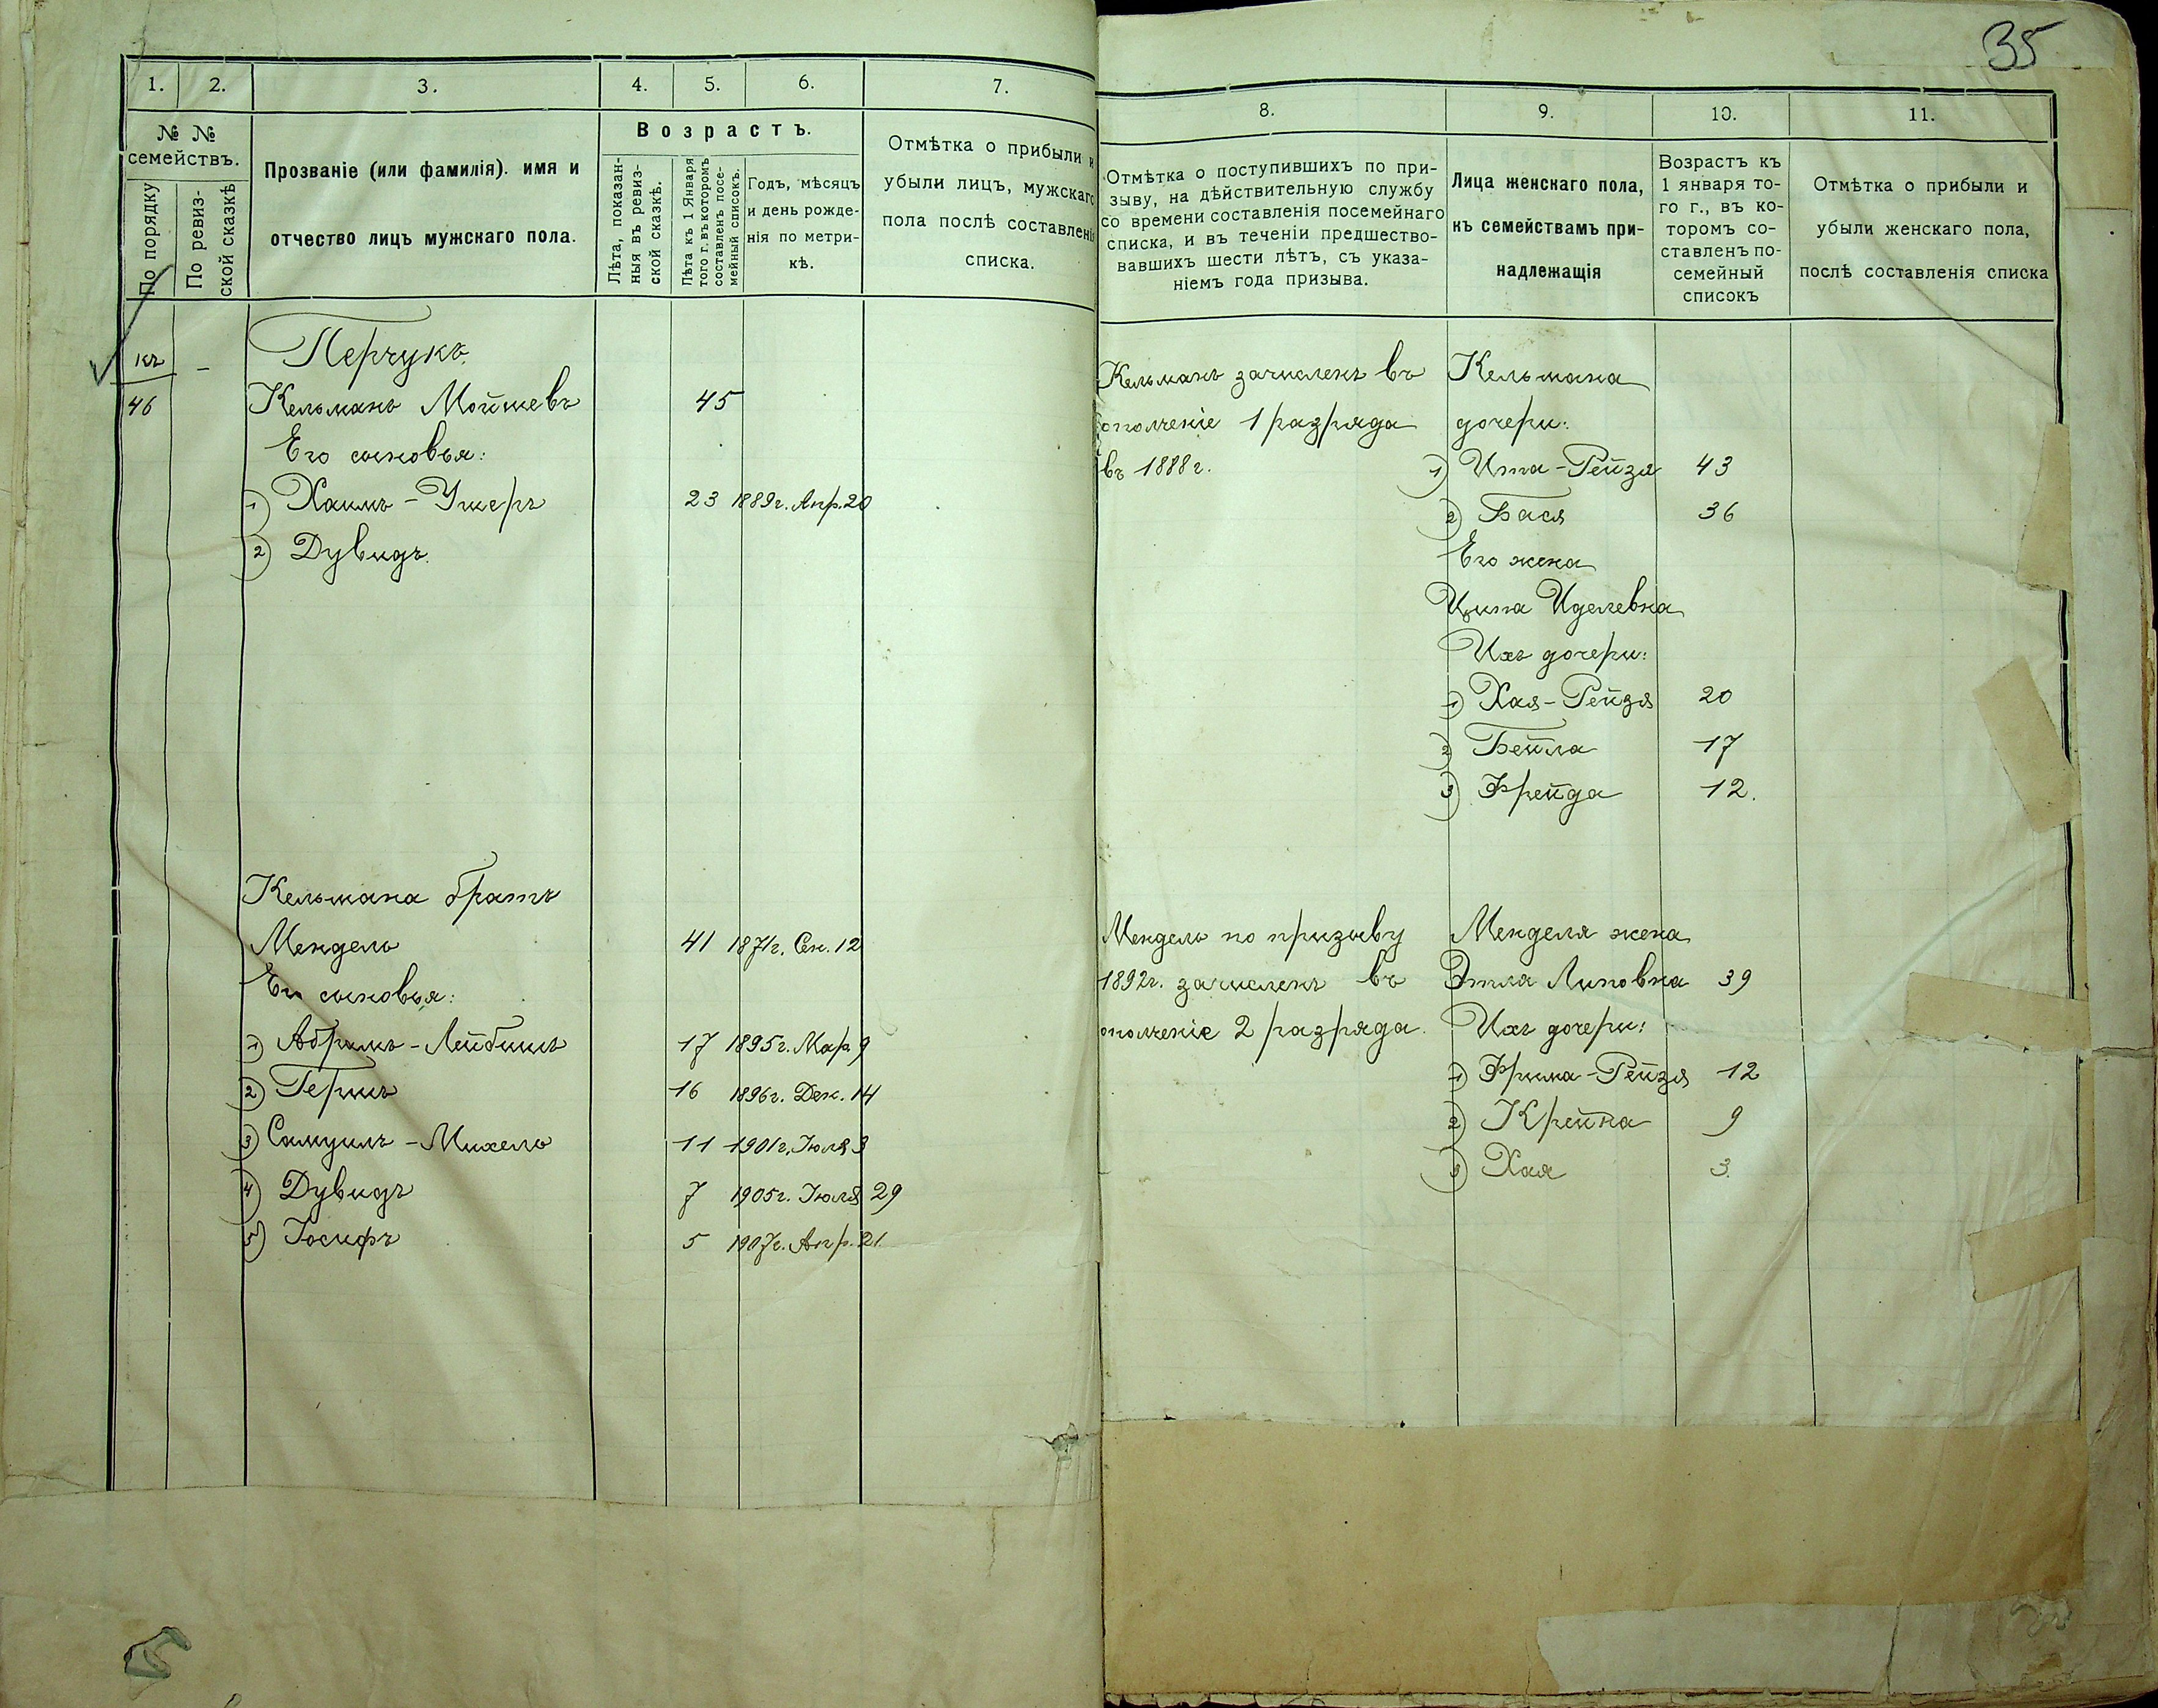 35
1. 2. 3. 4. 5. 6. 7.
№ №
семействъ.
По порядку
По ревиз-
ской сказкѣ
Прозваніе (или фамилія). имя и
отчество лицъ мужскаго пола.
Возрастъ.
Лѣта, показан-
ныя въ ревиз-
ской сказкѣ.
Лѣта къ 1 Января
того г. въ которомъ
составленъ посе-
мейный списокъ.
Годъ, мѣсяцъ
и день рожде-
нія по метри-
кѣ.
Отмѣтка о прибыли и
убыли лицъ, мужскаго
пола послѣ составленія
списка.
къ - Перчукъ
46 Кельманъ Мойшевъ 45
Его сыновья:
1) Хаимъ-Ушеръ 23 1889г. Апр. 20
2) Дувидъ.
Кельмана братъ
Мендель 41 1871г. Сен. 12
Его сыновья:
1) Абрамъ-Лейбишъ 17 1895г. Мар. 9
2) Гершъ 16 1896г. Дек. 14
3) Самуилъ-Михель 11 1901г. Іюля 3
4) Дувидъ 7 1905г. Іюля 29
5) Іосифъ 5 1907г. Апр. 21
8. 9. 10. 11.
Отмѣтка о поступившихъ по при-
зыву, на дѣйствительную службу
со времени составленія посемейнаго
списка, и въ теченіи предшество-
вавшихъ шести лѣтъ, съ указа-
ніемъ года призыва.
Лица женскаго пола,
къ семействамъ при-
надлежащія
Возрастъ къ
1 января то-
го г., въ ко-
торомъ со-
ставленъ по-
семейный
списокъ
Отмѣтка о прибыли и
убыли женскаго пола,
послѣ составленія списка
Кельманъ зачисленъ въ Кельмана
ополченіе 1 разряда дочери:
въ 1888г. 1) Ита-Рейзя 43
2) Бася 36
Его жена
Ципа Иделевна
Ихъ дочери:
1) Хая-Рейзя 20
2) Бейла 17
3) Фрейда 12.
Мендель по призыву Менделя жена
1892г. зачисленъ въ Этля Липовна 39
ополченіе 2 разряда. Ихъ дочери:
1) Фрима-Рейзя 12
2) Крейна 9
3) Хая 3.